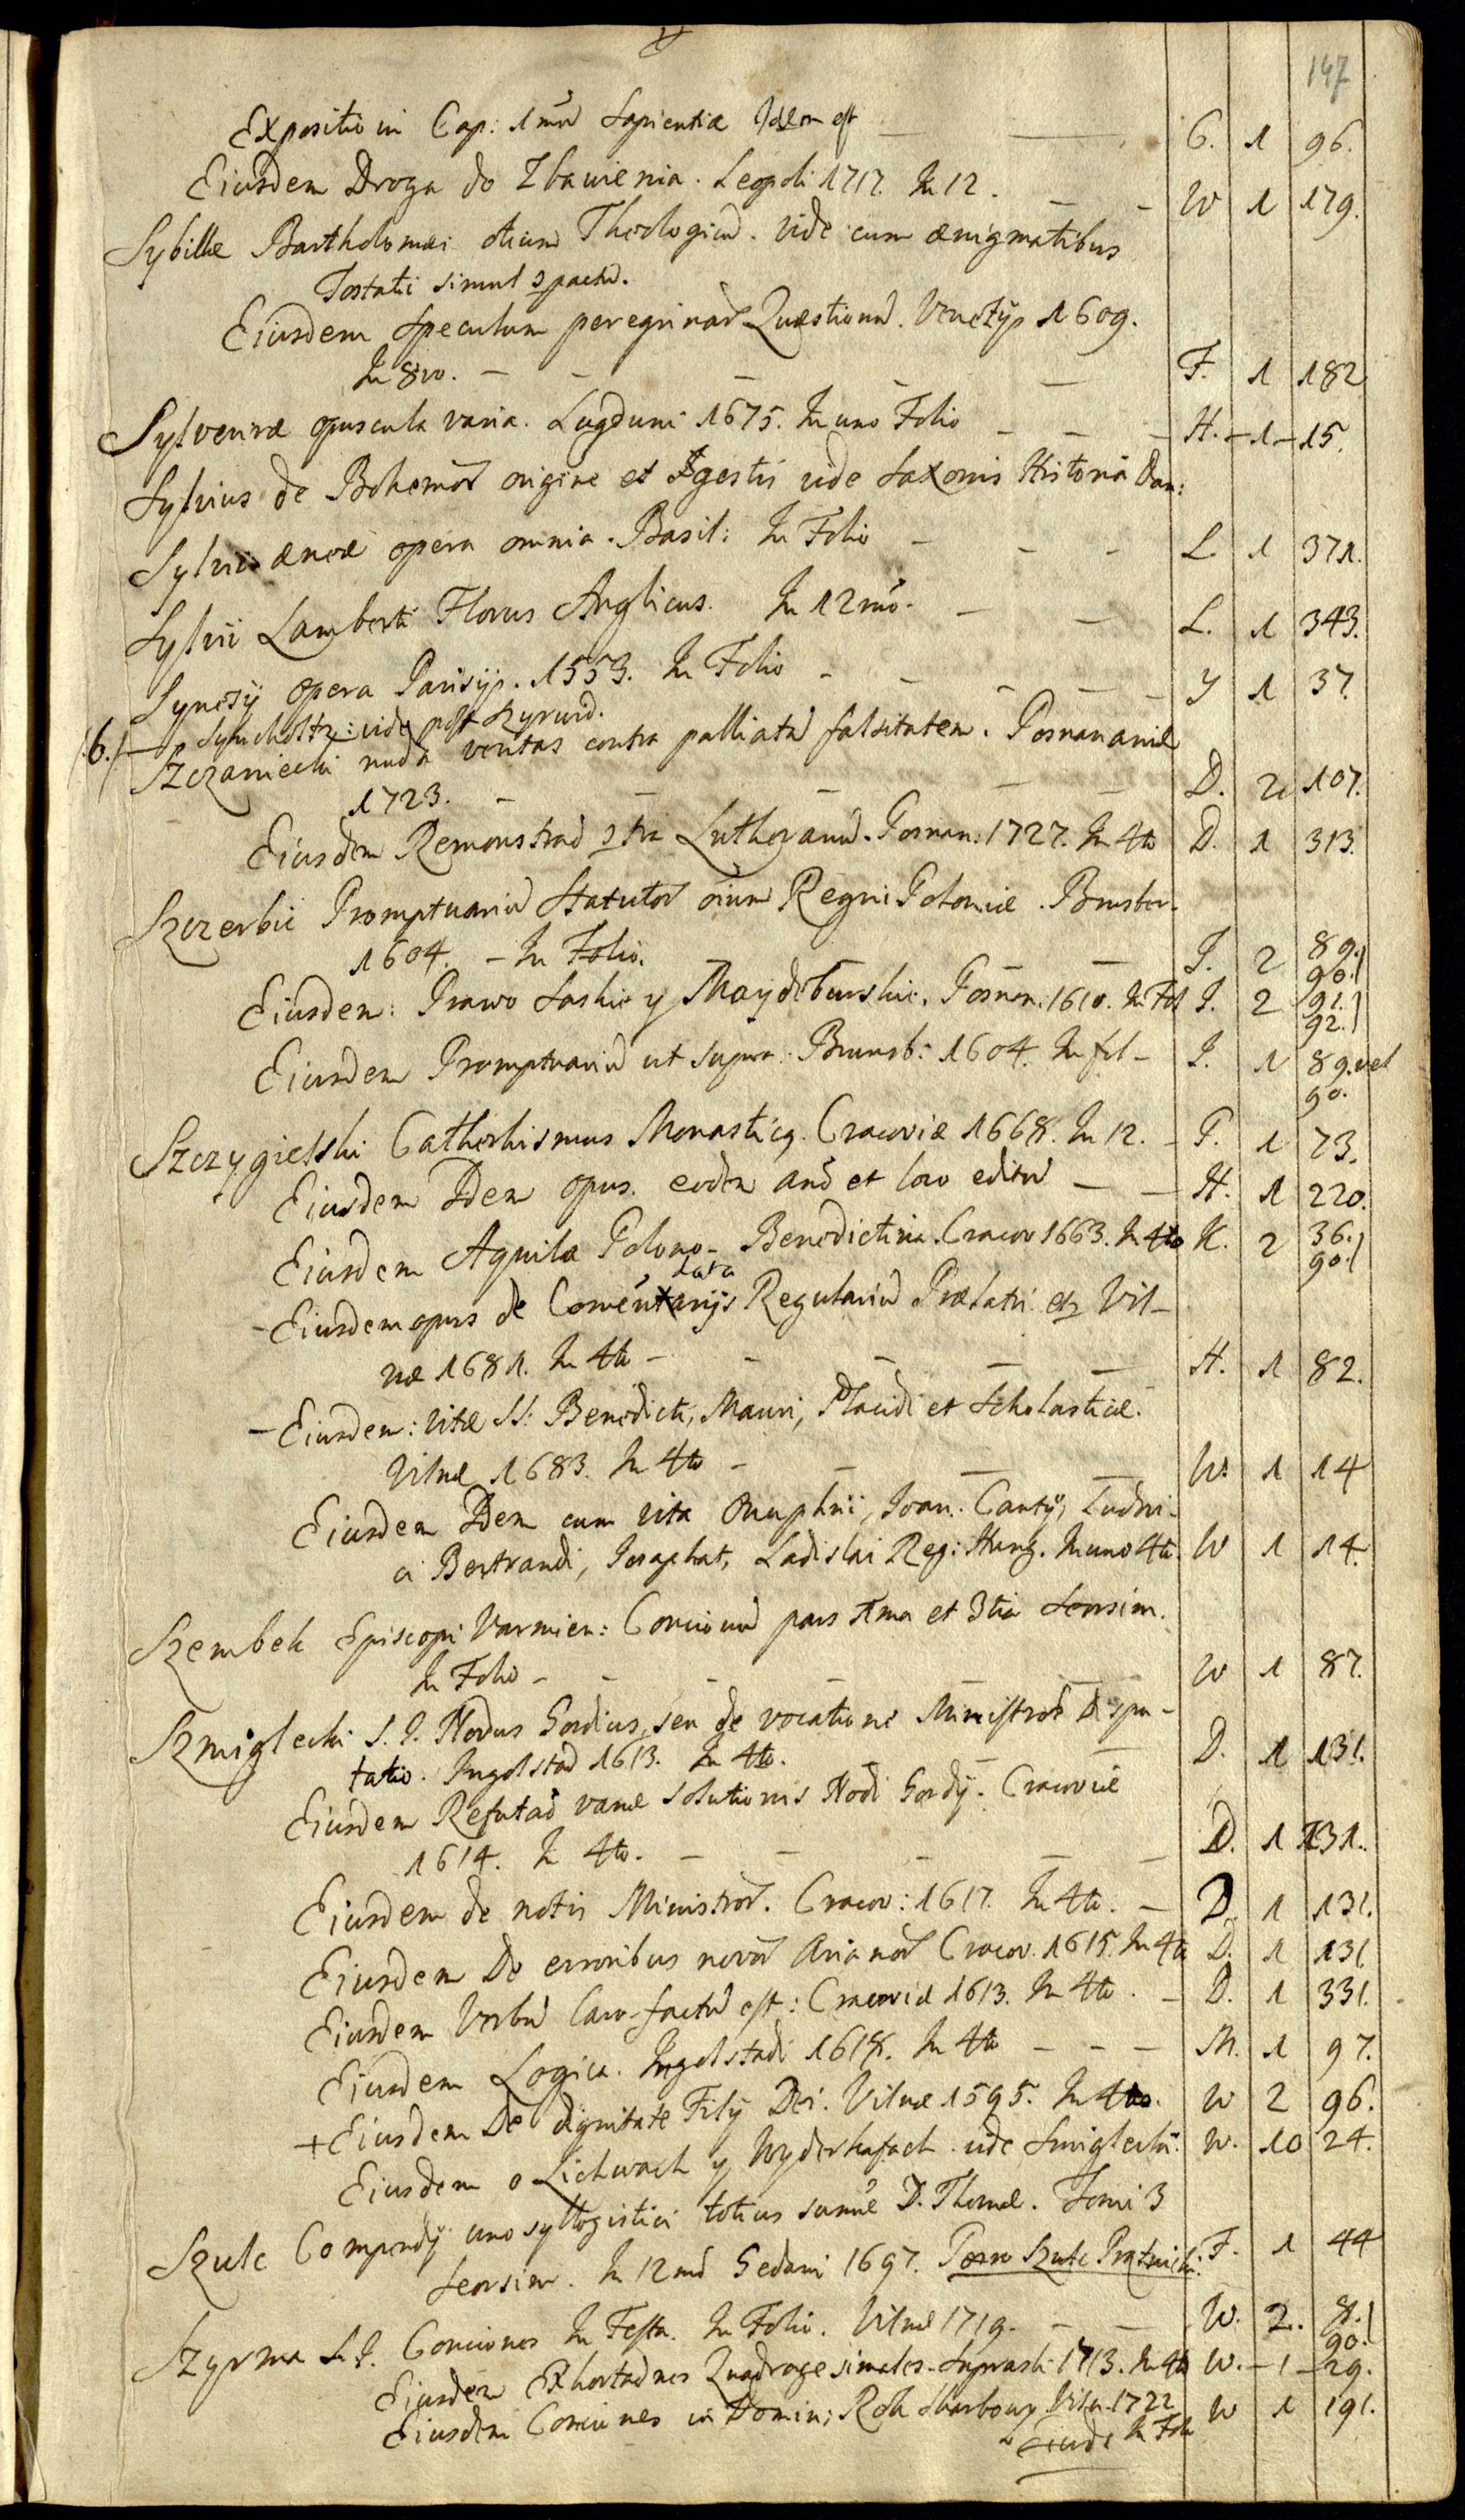 y
147
Expositio in Cap: 1mu Sapientiæ Idem est — — G. 1 96.
Eiusdem Droga do Zbawienia. Leopoli 1717. In 12. — — W 1 179.
Sybillæ Bartholomæi otium Theologicu. vide cum ænigmatibus
Tostati simul
Eiusdem Speculum peregrinar Quæstionu. Venetijs 1609.
In 8vo. — — — — — F. 1 182
Sylveiræ opuscula varia. Lugduni 1675. In uno Folio — — — H. — 1 — 15.
Sylvius de Bohemor origine et gestis vide Saxonis Historia Dan:
Sylvii æneæ opera omnia. Basil: In Folio — — — L 1 371.
Sylvii Lamberti Florus Anglicus. In 12mo. — — L. 1 343.
Synesij opera Parisijs. 1553. In Folio — — — — — Y 1 37.
/:6.:/ — Symcholtz: vide post Szyrwid.
Szczaniecki nuda veritas contra palliata falsitatem. Posnaniæ
1723. — — — — — D. 2 107.
Eiusdem Remonstrao Lutheranu. Posnan: 1727. In 4to D. 1 313.
Szczerbic Promptuariu Statutor oium Regni Poloniæ. Brunsber.
1604. — In Folio. — — J. 2 89. 90.
Eiusdem: Prawo Saskie y Maydeburskie. Posnan. 1610. In Fol J. 2 91. 92.
Eiusdem Promptuariu ut supra. Brunsb: 1604. In fol — J. 1 89. vel 90.
Szczygielski Cathechismus Monasticq. Cracoviæ 1668. In 12. — P. 1 73.
Eiusdem Idem opus. eodem ano et loco editu — — H. 1 220.
Eiusdem Aquila Polono-Benedictina. Cracov 1663. In 4to K. 2 36. 90.
data
— Eiusdem opus de Comentarijs Regulariu Prælati etz Vil-
næ 1681. In 4to — — — — — H. 1 82.
— Eiusdem: Vitæ SS: Benedicti, Mauri, Placidi et Scholasticæ.
Vilnæ 1683. In 4to — — — — W. 1 14
Eiusdem Idem cum vita Onuphrii, Ioan. Cantij, Ludovi-
ci Bertrandi, Iosaphat, Ladislai Reg: Hung. In uno 4to. W 1 14.
Szembek Episcopi Varmien: Concionu pars 1ma et 3tia seorsim.
In Folio — — — — — W 1 87.
Szmiglecki S. J. Nodus Gordius, seu de vocatione Ministror Dispu-
tatio. Ingolstad 1613. In 4to. — — D. 1 131.
Eiusdem Refutao vanæ solutionis Nodi Gordij. Cracoviæ
1614. In 4to. — — — — — D. 1 131.
Eiusdem de notis Ministror. Cracov: 1617. In 4to. — D. 1 131.
Eiusdem De erroribus novor Arianor Cracov. 1615. In 4to D. 1 131
Eiusdem Verbu Caro factu est: Cracoviæ 1613. In 4to. — D. 1 331.
Eiusdem Logica. Ingolstadi 1618. In 4to — — — M. 1 97.
+ Eiusdem De dignitate Filij Dei. Vilnæ 1595. In 4to. W 2 96.
Eiusdem o Lichwach y Wyderkafach vide Smiglecki. W. 10 24.
Szulc Compendij uno syllogistici totius sumæ D. Thomæ. Tomi 3
seorsim. In 12mo Gedani 1697. Porro Szulc Prętnicki. F. 1 44
Szyrma S. J. Conciones In Festa. In Folio. Vilnæ 1719. — — W. 2. 8. 90.
Eiusdem Exhortaones Quadragesimales. Suprasli 1713. In 4to W. — 1 — 29.
Eiusdem Conciones in Domin: Rok Skarbowy Viln. 1722 W 1 191.
In Fol